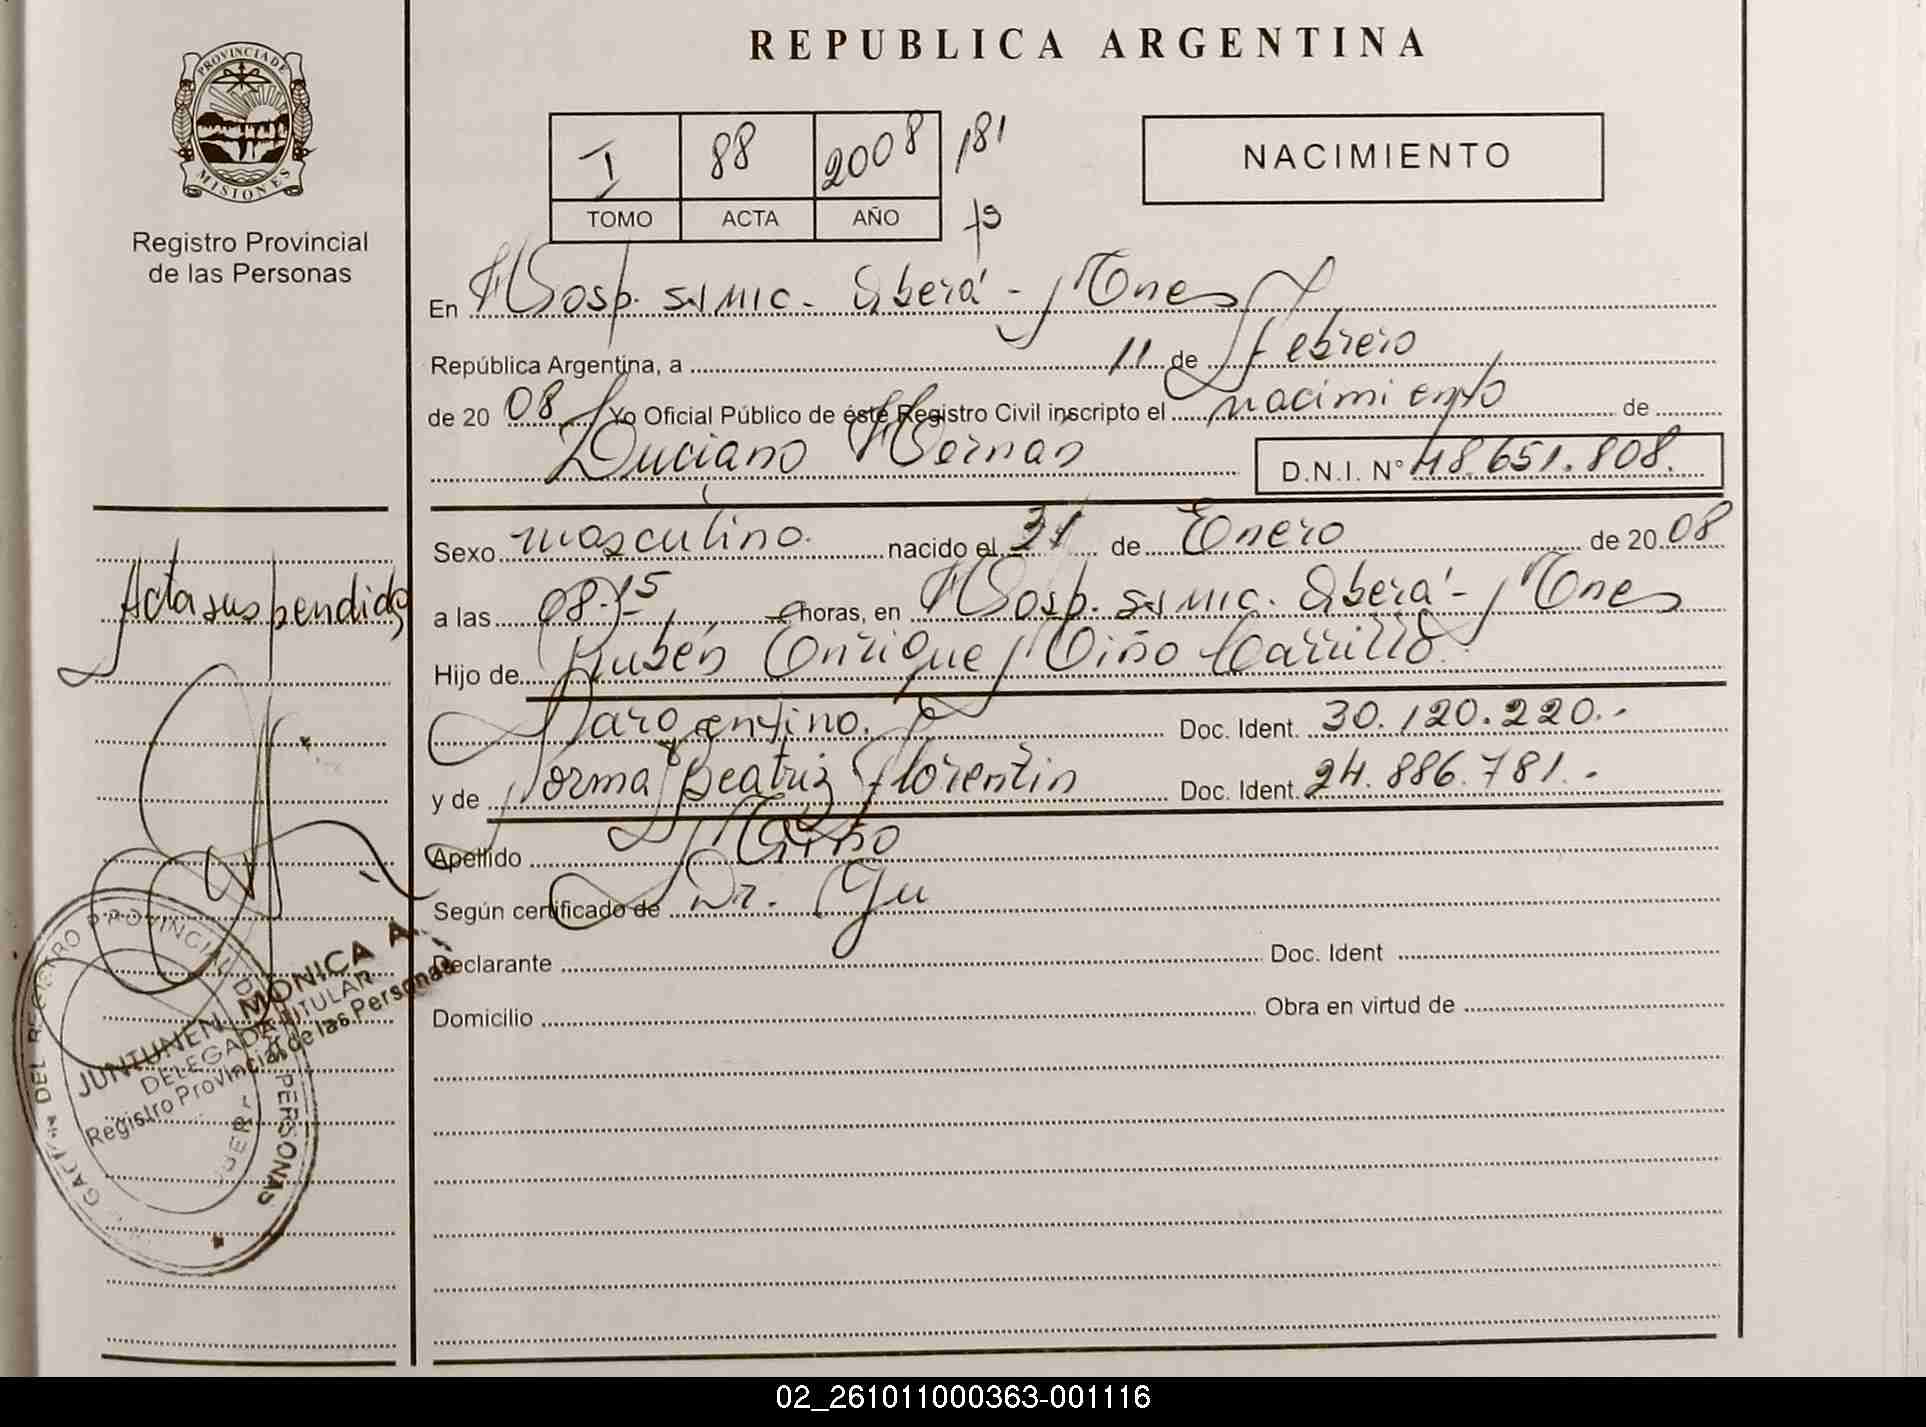 PROVINCIA DE
MISIONES
Registro Provincial
de las Personas
REPUBLICA ARGENTINA
I 88 2008 181
TOMO ACTA AÑO
NACIMIENTO
En Hosp. SAMIC. Oberá - Mnes
República Argentina, a 11 de febrero
de 20 08 Yo Oficial Público de éste Registro Civil inscripto el nacimiento de
Luciano Hernán D.N.I. Nº 48.651.808.
Sexo masculino. nacido el 31 de Enero de 20 08
a las 08.15 horas, en Hosp. SAMIC. Oberá - Mnes
Hijo de Rubén Enrique Miño Carrillo
argentino. Doc. Ident. 30.120.220.-
y de Norma Beatriz Florentin Doc. Ident. 24.886.781.-
Apellido Miño
Según certificado de Dr.
Declarante Doc. Ident
Domicilio Obra en virtud de
Acta suspendida
JUNTUNEN MONICA A.
DELEGADA TITULAR
Registro Provincial de las Personas
DEL REGISTRO PROVINCIAL DE PERSONAS
02_261011000363-001116